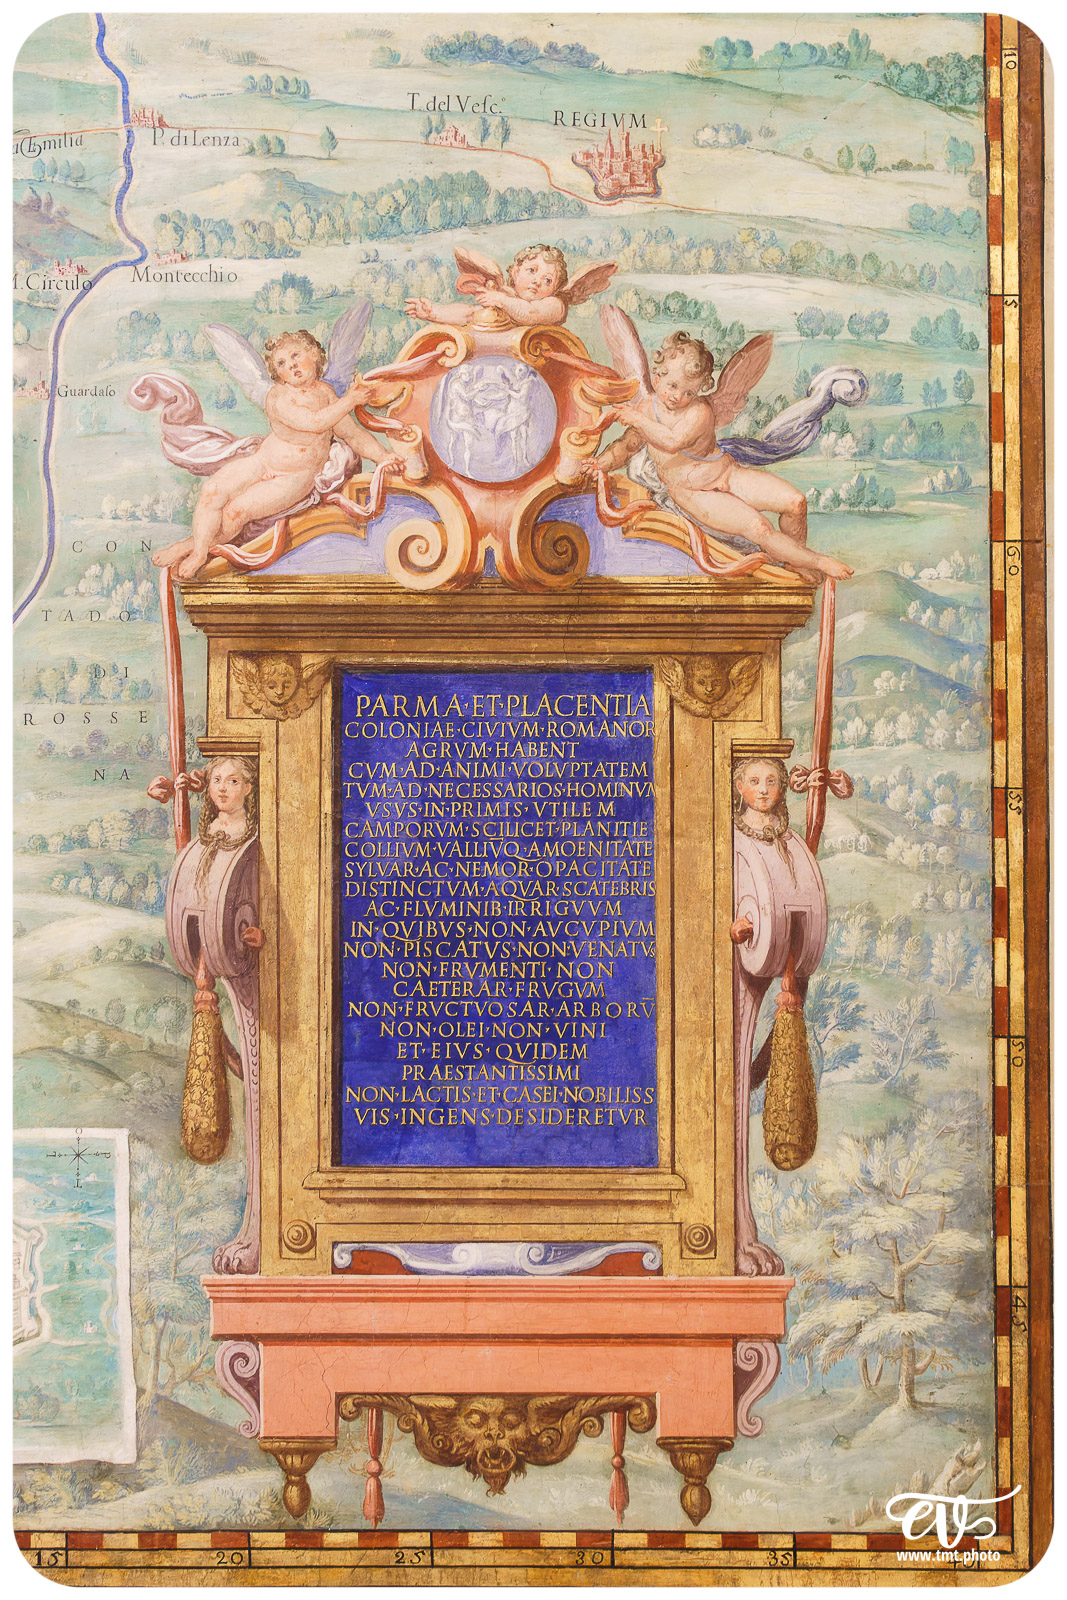 T. del Vesc.º
REGIVM
P. di Lenza
Montecchio
M. Circulo
Guardaso
CON
TADO
DI
ROSSE
NA
PARMA·ET·PLACENTIA
COLONIAE·CIVIVM·ROMANOR
AGRVM·HABENT
CVM·AD·ANIMI·VOLVPTATEM
TVM·AD·NECESSARIOS·HOMINVM
VSVS·IN·PRIMIS·VTILEM
CAMPORVM·SCILICET·PLANITIE
COLLIVM·VALLIVQ·AMOENITATE
SYLVAR·AC·NEMOR·OPACITATE
DISTINCTVM·AQVAR·SCATEBRIS
AC·FLVMINIB·IRRIGVVM
IN·QVIBVS·NON·AVCVPIVM
NON·PISCATVS·NON·VENATVS
NON·FRVMENTI·NON
CAETERAR·FRVGVM
NON·FRVCTVOSAR·ARBORV̄
NON·OLEI·NON·VINI
ET·EIVS·QVIDEM
PRAESTANTISSIMI
NON·LACTIS·ET·CASEI·NOBILISS
VIS·INGENS·DESIDERETVR
10
5
60
55
50
45
15
20
25
30
35
40
evs
www.tmt.photo